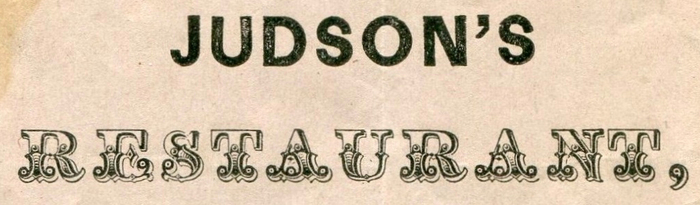 JUDSON'S
RESTAURANT,